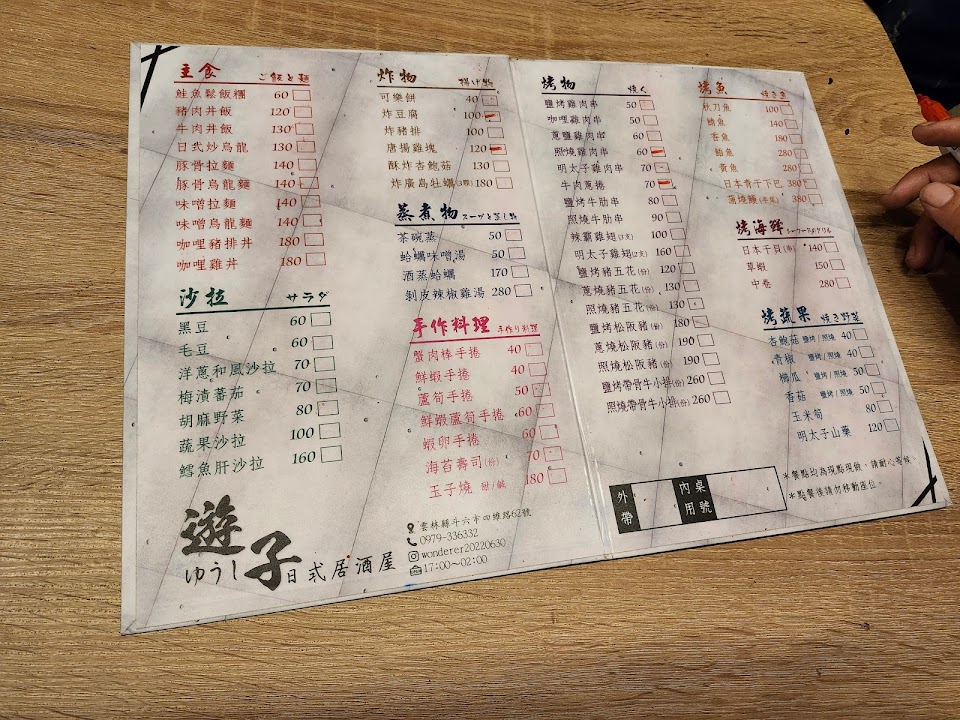 主食 ご飯と麺
鮭魚鬆飯糰 60
豬肉丼飯 120
牛肉丼飯 130
日式炒烏龍 130
豚骨拉麵 140
豚骨烏龍麵 140
味噌拉麵 140
味噌烏龍麵 140
咖哩豬排丼 180
咖哩雞丼 180
沙拉 サラダ
黑豆 60
毛豆 60
洋蔥和風沙拉 70
梅漬番茄 70
胡麻野菜 80
蔬果沙拉 100
鱈魚肝沙拉 160
遊子
ゆうし 日式居酒屋
炸物 揚げ物
可樂餅 40
炸豆腐 100
炸豬排 100
唐揚雞塊 120
酥炸杏鮑菇 130
炸廣島牡蠣(3顆) 180
蒸煮物 スープと蒸し物
茶碗蒸 50
蛤蠣味噌湯 50
酒蒸蛤蠣 170
剝皮辣椒雞湯 280
手作料理 手作り料理
蟹肉棒手捲 40
鮮蝦手捲 40
蘆筍手捲 50
鮮蝦蘆筍手捲 60
蝦卵手捲 60
海苔壽司(份) 70
玉子燒 甜/鹹 180
雲林縣斗六市四維路62號
0979-336332
wonderer20220630
17:00～02:00
烤物 焼く
鹽烤雞肉串 50
咖哩雞肉串 50
蔥鹽雞肉串 60
照燒雞肉串 60
明太子雞肉串 70
牛肉蔥捲 70
鹽烤牛肋串 80
照燒牛肋串 90
辣霸雞翅(2支) 100
明太子雞翅(2支) 160
鹽烤豬五花(份) 120
蔥燒豬五花(份) 130
照燒豬五花(份) 130
鹽烤松阪豬(份) 180
蔥燒松阪豬(份) 190
照燒松阪豬(份) 190
鹽烤帶骨牛小排(份) 260
照燒帶骨牛小排(份) 260
外帶 內用 桌號
烤魚 焼き魚
秋刀魚 100
鯖魚 140
香魚 180
鮭魚 280
黃魚 280
日本青干下巴 380
蒲燒鰻(半尾) 380
烤海鮮 シーフードのグリル
日本干貝(串) 140
草蝦 150
中卷 280
烤蔬果 焼き野菜
杏鮑菇 鹽烤/照燒 40
青椒 鹽烤/照燒 40
櫛瓜 鹽烤/照燒 50
香菇 鹽烤/照燒 50
玉米筍 80
明太子山藥 120
*餐點均為現點現做，請耐心等候
*點餐後請勿移動座位。